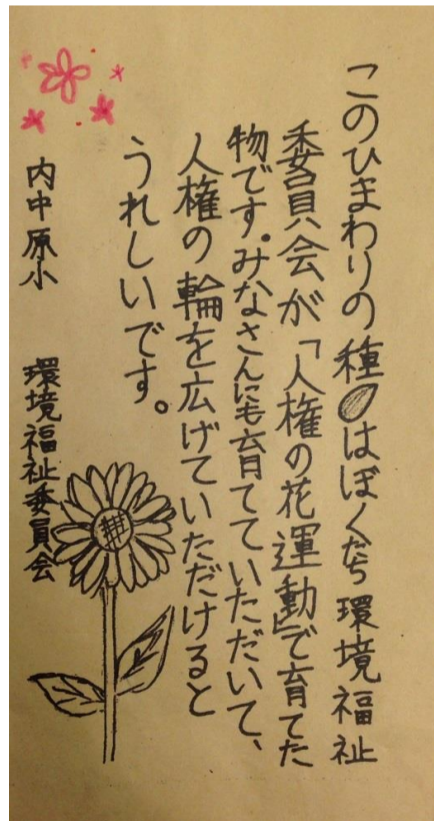 このひまわりの種はぼくたち環境福祉
委員会が「人権の花運動」で育てた
物です。みなさんにも育てていただいて、
人権の輪を広げていただけると
うれしいです。
内中原小 環境福祉委員会